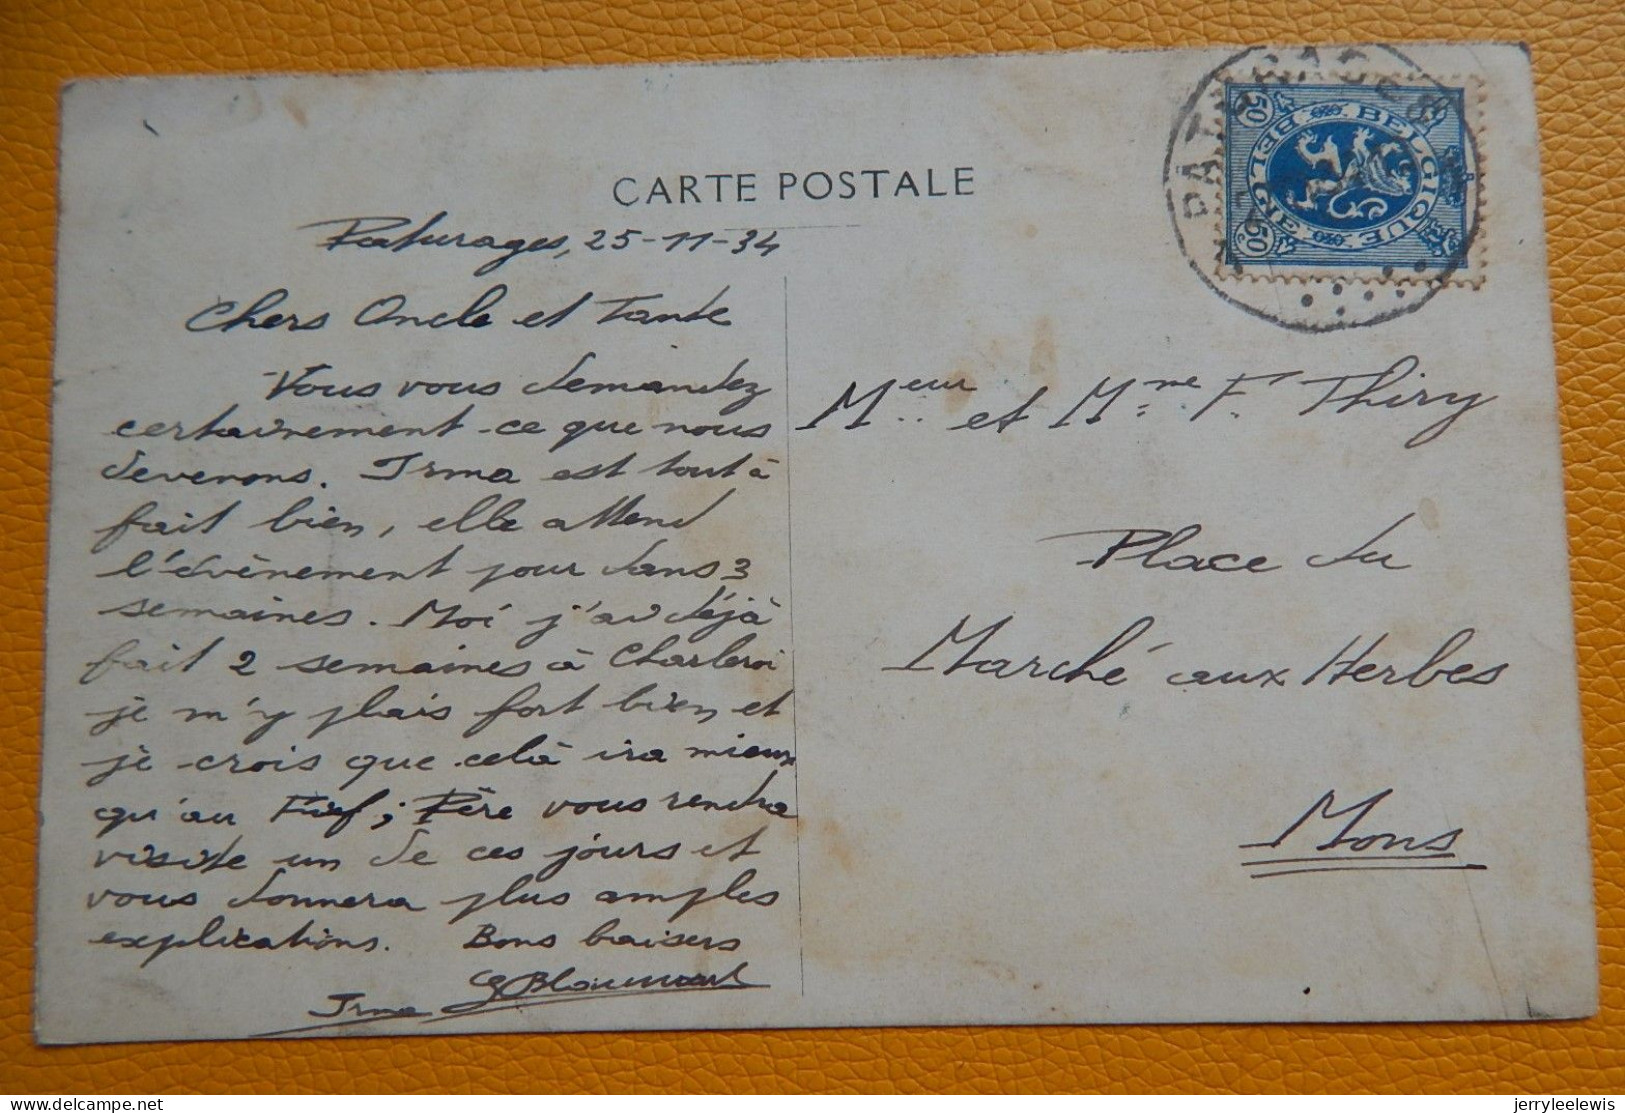 CARTE POSTALE
Paturages, 25-11-34
Chers Oncle et Tante
Vous vous demandez
certainement ce que nous
devenons. Irma est tout à
fait bien, elle attend
l'évènement pour dans 3
semaines. Moi j'ai déjà
fait 2 semaines à Charleroi
je m'y plais fort bien et
je crois que celà ira mieux
qu'au Fief; Père vous rendra
visite un de ces jours et
vous donnera plus amples
explications. Bons baisers
Irma
Meur et Mme F. Thiry
Place du
Marché aux Herbes
Mons
PATURAGES
BELGIQUE
BELGIE
50
50
jerryleelewis